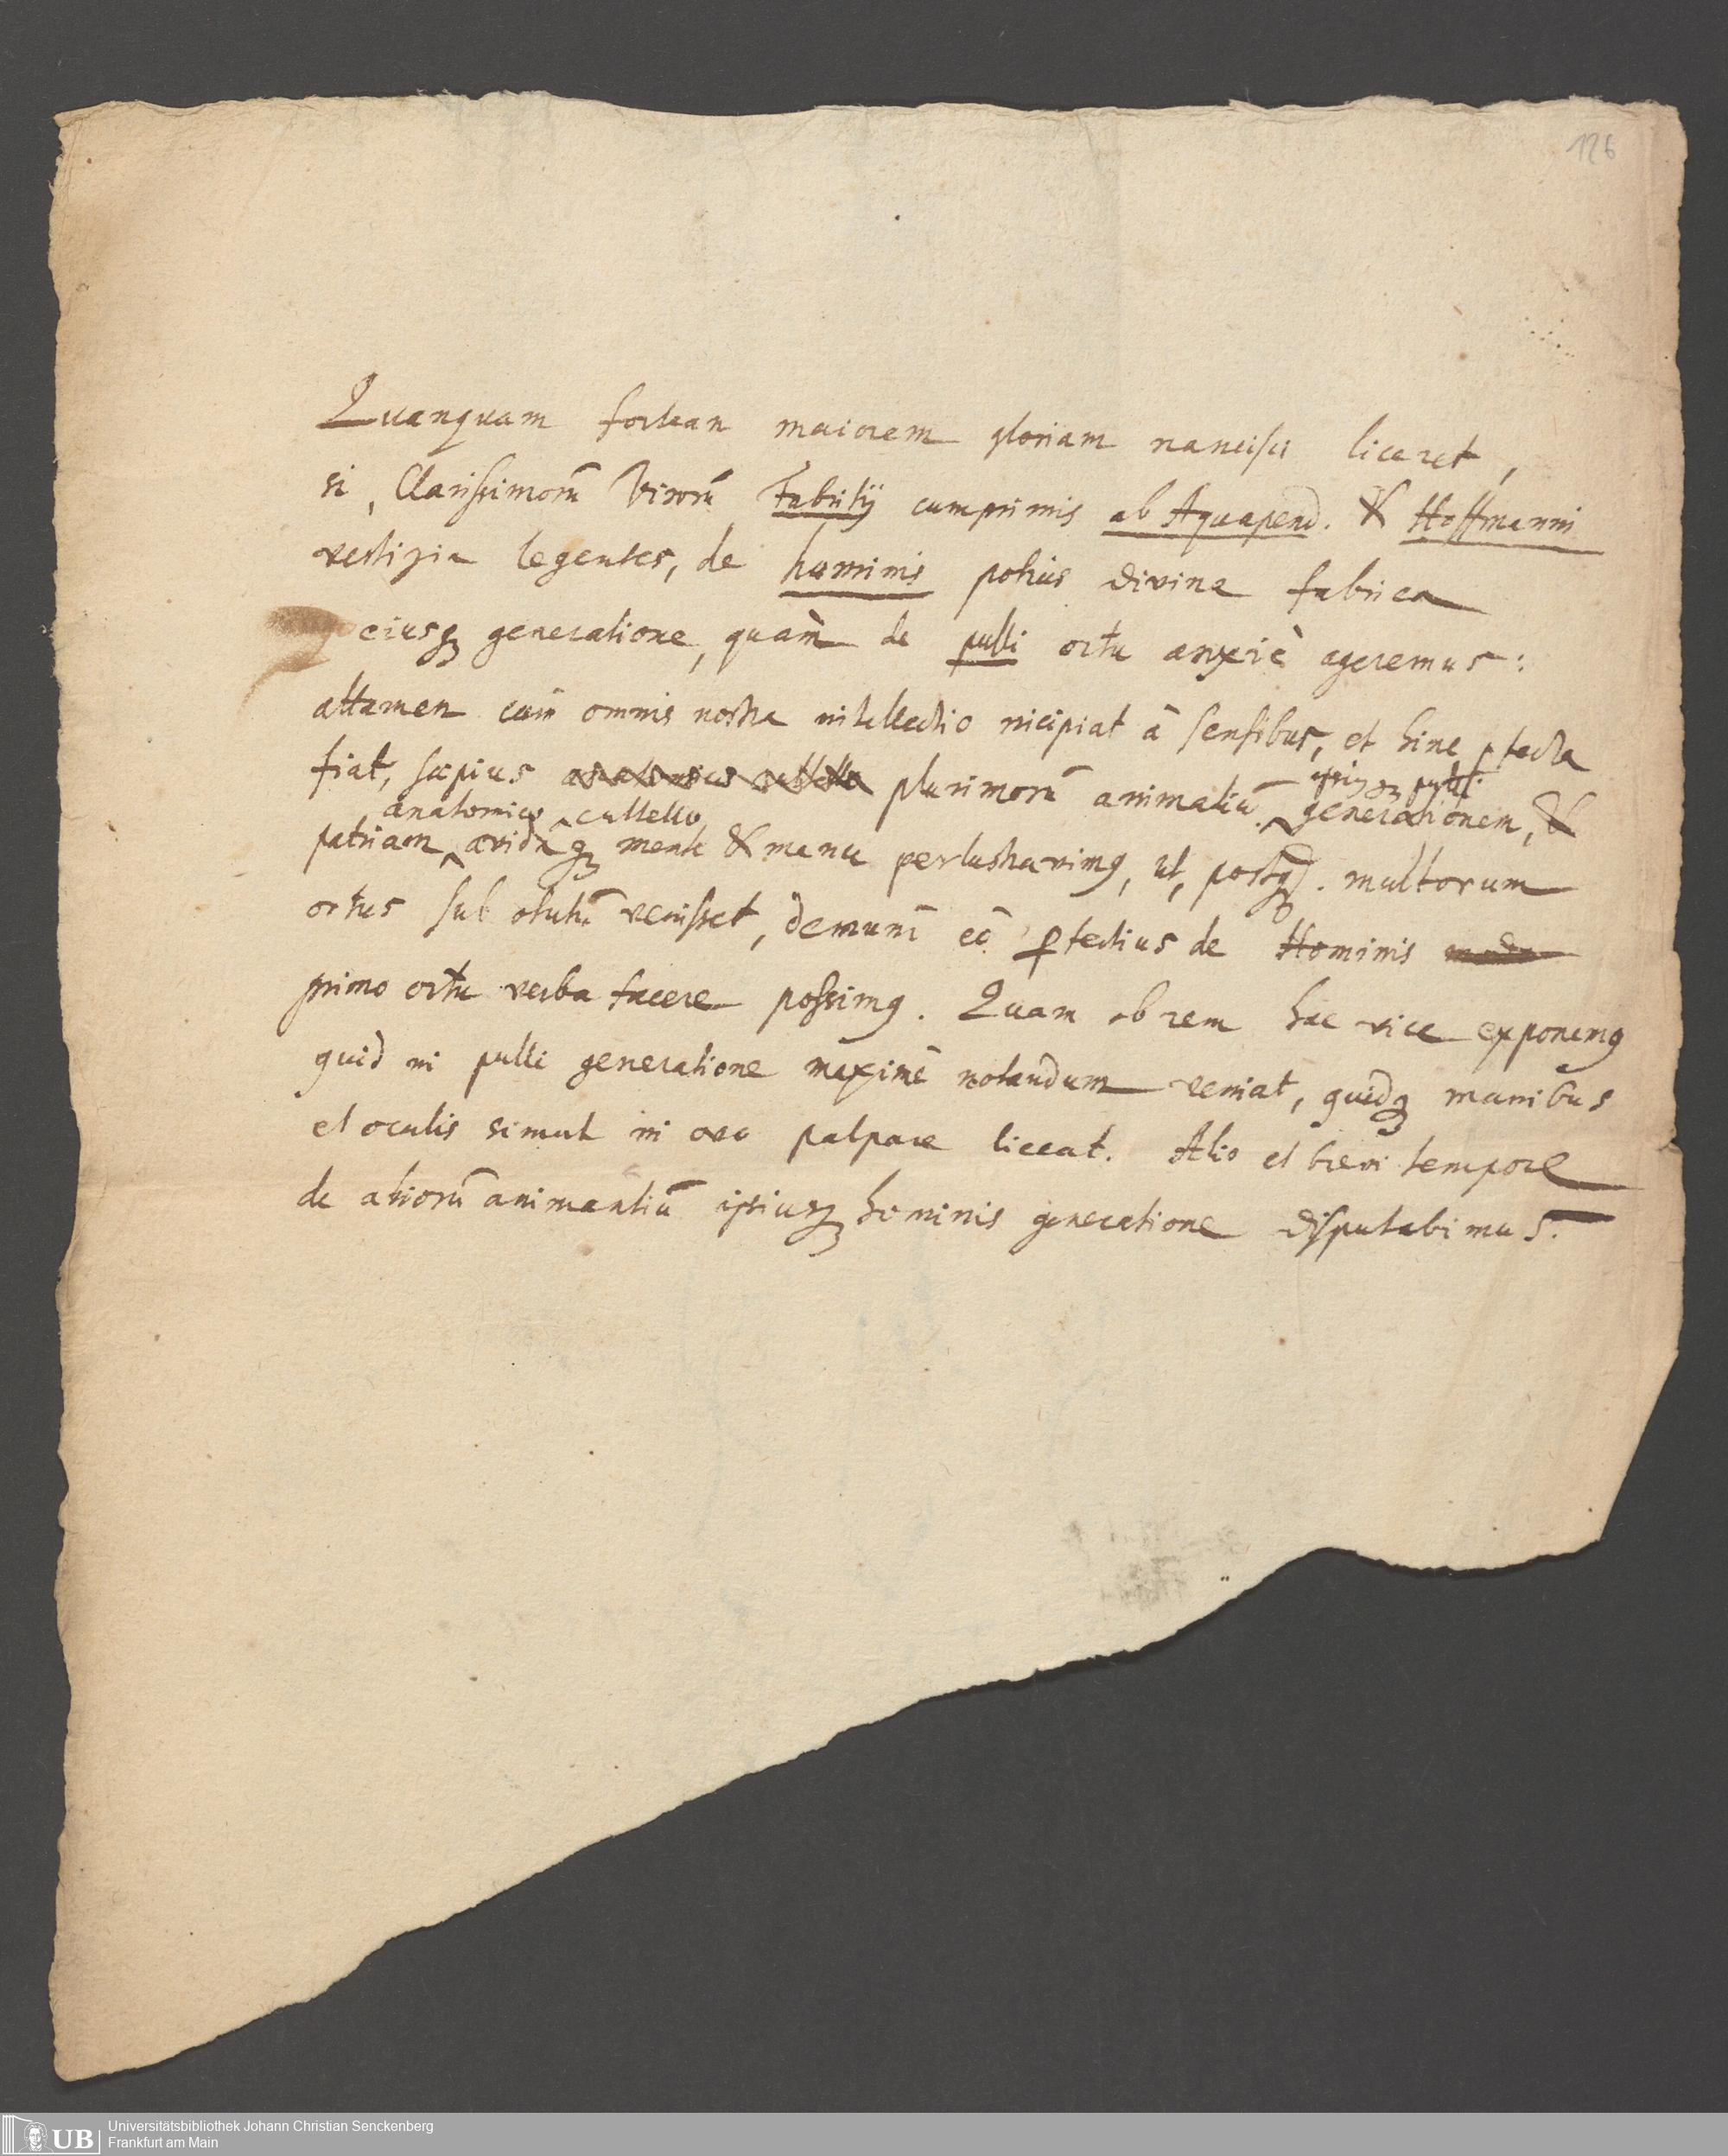 126
Quanquam fortean maiorem gloriam nancisci liceret,
si, Clarissimorũ Virorũ Fabritij cumprimis ab Aquapend. & Hoffmanni
vestigia legentes, de hominis potius divina fabrica
eiusq; generatione, quàm de pulli ortu anxiè ageremus:
attamen cum̃ omnis nostra intellectio incipiat à sensibus, et hinc ꝑfecta
fiat, sæpius anatomico cultello plurimorũ animaliũ generationem, &
anatomico cultello
patriam avidaq; mente & manu perlustravimꝰ, ut, postqꝫ. multorum
ortus sub obtutũ venisset, demum̃ eò ꝑfectius de Hominis modo
primo ortu verba facere possimꝰ. Quam ob rem hac vice exponemꝰ
quid in pulli generatione maximè notandum veniat, quidq; manibus
et oculis simul in ovo palpare liceat. Alio et brevi tempore
de aliorũ animantiũ ipsiusq; hominis generatione disputabimus.
UB
Universitätsbibliothek Johann Christian Senckenberg
Frankfurt am Main